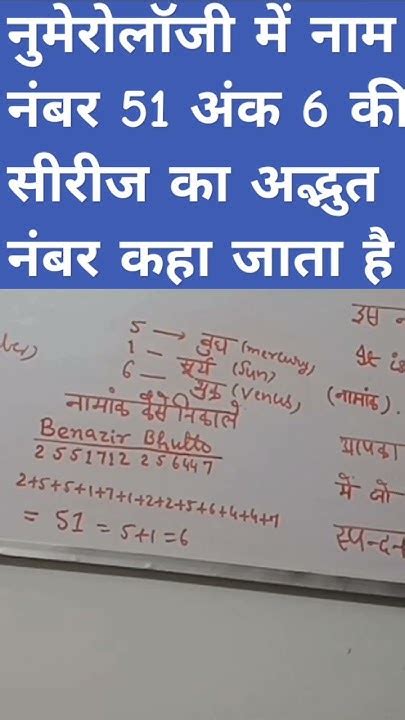 नुमेरोलॉजी में नाम
नंबर 51 अंक 6 की
सीरीज का अद्भुत
नंबर कहा जाता है
5 → बुध (mercury)
1 — सूर्य (Sun)
6 — शुक्र (Venus)
नामांक कैसे निकाले
Benazir Bhutto
2551712 256447
2+5+5+1+7+1+2+2+5+6+4+4+7
= 51 = 5+1=6
इस
is
(नामांक).
आपका
में जो